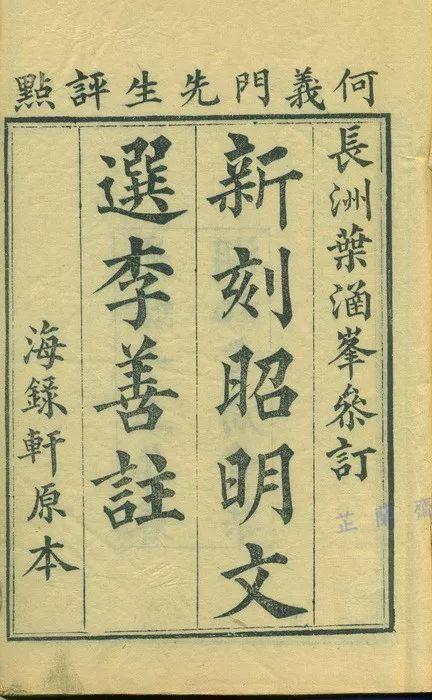 何義門先生評點
長洲葉涵峯叅訂
新刻昭明文
選李善註
海錄軒原本
芷蘭齋